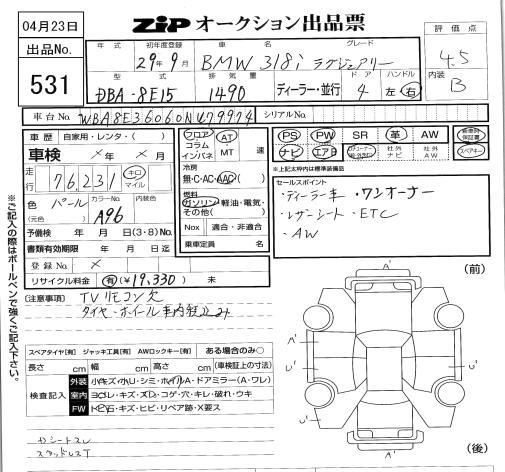 04月23日
ZIP オークション出品票
出品No.
531
評価点
4.5
内装
B
年式 初年度登録 車名 グレード
29年9月 BMW 318i ラグジュアリー
型式 排気量 ドア ハンドル
DBA-8E15 1490 ディーラー・並行 4 左 右
車台No. シリアルNo.
車歴 自家用・レンタ・( )
車検 ×年 ×月
走行 76,231 キロ マイル
色 (元色) パール カラーNo. A96 内装色
予備検 年 月 日(3・8)No.
書類有効期限 年 月 日迄
登録No. ×
リサイクル料金 有(¥19,330) 未
フロア コラム インパネ
AT MT 速
冷房
無・C・AC・AAC
燃料
ガソリン・軽油・電気・その他( )
Nox 適合・非適合
乗車定員 名
PS PW SR 革 AW 新車時保証書
ナビ エアB 社外ナビ 社外AW スペアキー
※上記太枠内は標準装備品
セールスポイント
・ディーラー車・ワンオーナー
・レザーシート・ETC
・AW
(注意事項) TVリモコン欠
タイヤ・ホイール車内積込み
スペアタイヤ[有] ジャッキ工具[有] AWロックキー[有] ある場合のみ○
長さ cm 幅 cm 高さ cm (車検証上の寸法)
検査記入
外装 小キズ・小U・シミ・ホイルA・ドアミラー(A・ワレ)
室内 ヨゴレ・キズ・スレ・コゲ・穴・キレ・破れ・ウキ
FW トビ石・キズ・ヒビ・リペア跡・X要ス
カシートスレ
スタッドレスT
※ご記入の際はボールペンで強くご記入下さい。
(前)
A'
A'
U'
U'
U'
U'
A'
(後)